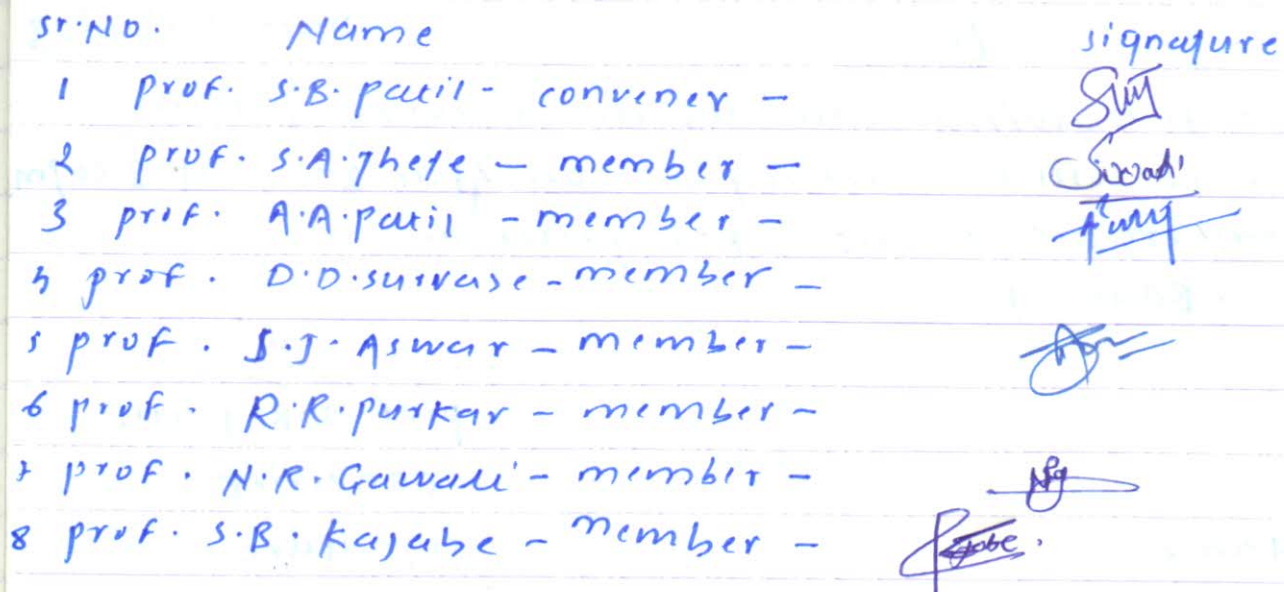 Sr.No. Name signature
1 prof. S.B. patil - convener -
2 prof. S.A. Thete - member -
3 prof. A.A. patil - member -
4 prof. D.D. survase - member -
5 prof. S.J. Aswar - member -
6 prof. R.R. purkar - member -
7 prof. N.R. Gawali - member -
8 prof. S.B. Kajabe - member -